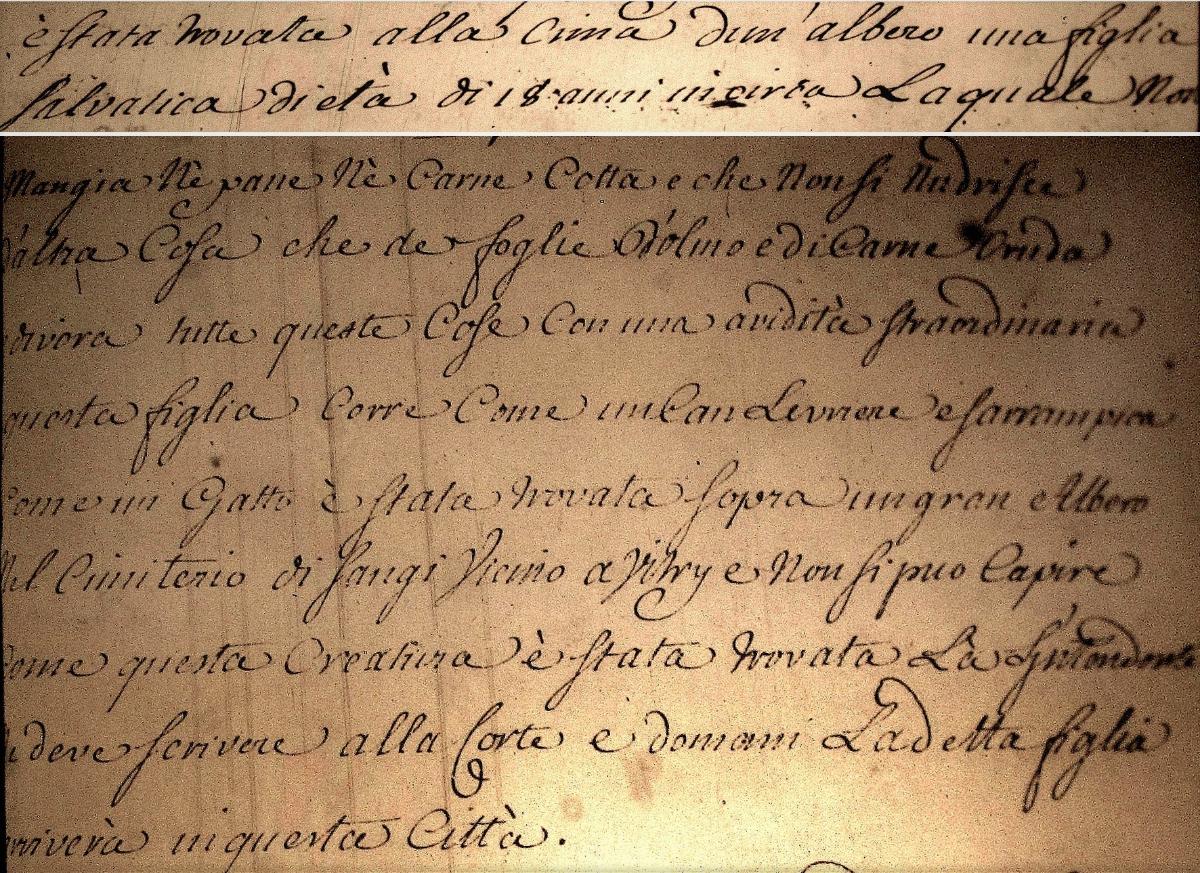 è stata trovata alla Cima dun' albero una figlia
salvatica di età di 18 anni in circa La quale Non
Mangia Nè pane Nè Carne Cotta e che Non si Nudrisce
d'altra Cosa che de foglie d'olmo e di Carne Cruda
divora tutte queste Cose Con una avidità straordinaria
questa figlia Corre Come un Can Levriere e sarrampica
Come un Gatto è stata trovata sopra un gran Albero
Nel Cimiterio di Sangi Vicino a Vitry e Non si puo Capire
Come questa Creatura è stata trovata Là
deve scrivere alla Corte e domani La detta figlia
arriverà in questa Città.